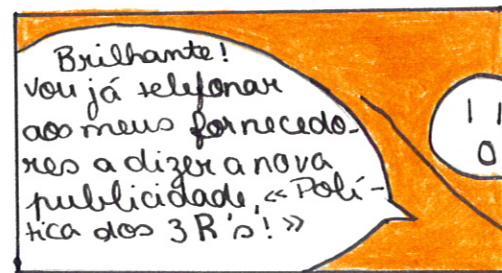 Brilhante!
Vou já telefonar
aos meus fornecedo-
res a dizer a nova
publicidade, «Polí-
tica dos 3 R's!»